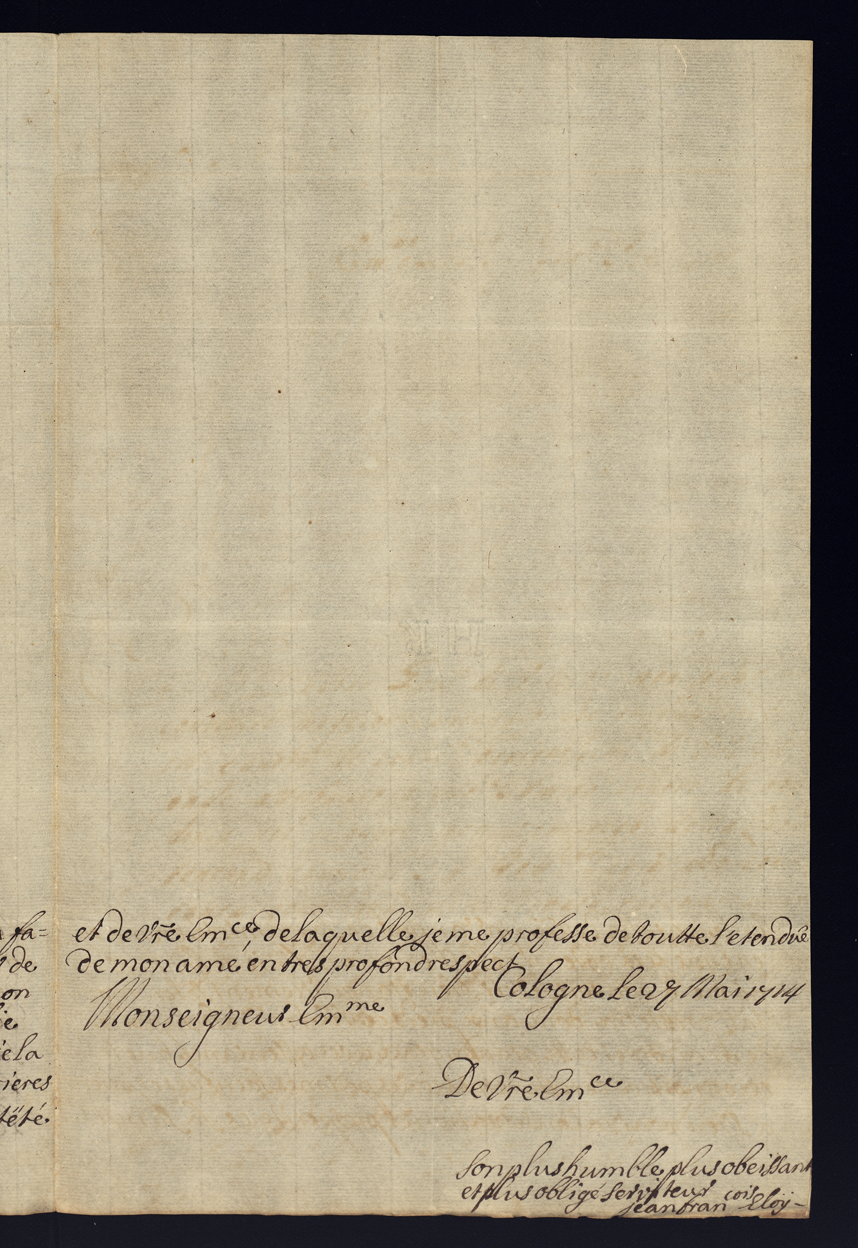 fa=
de
on
ie
ie la
rieres
tété
et de vr̃e Em^ce de laquelle je me professe de toutte l'etendüe
de mon ame en tres profond respect
Cologne le 27 Mai 1714
Monseigneur Em^me
De Vr̃e Em^ce
Son plus humble plus obeissant
et plus obligé serviteur
jean fran^cois Eloÿ